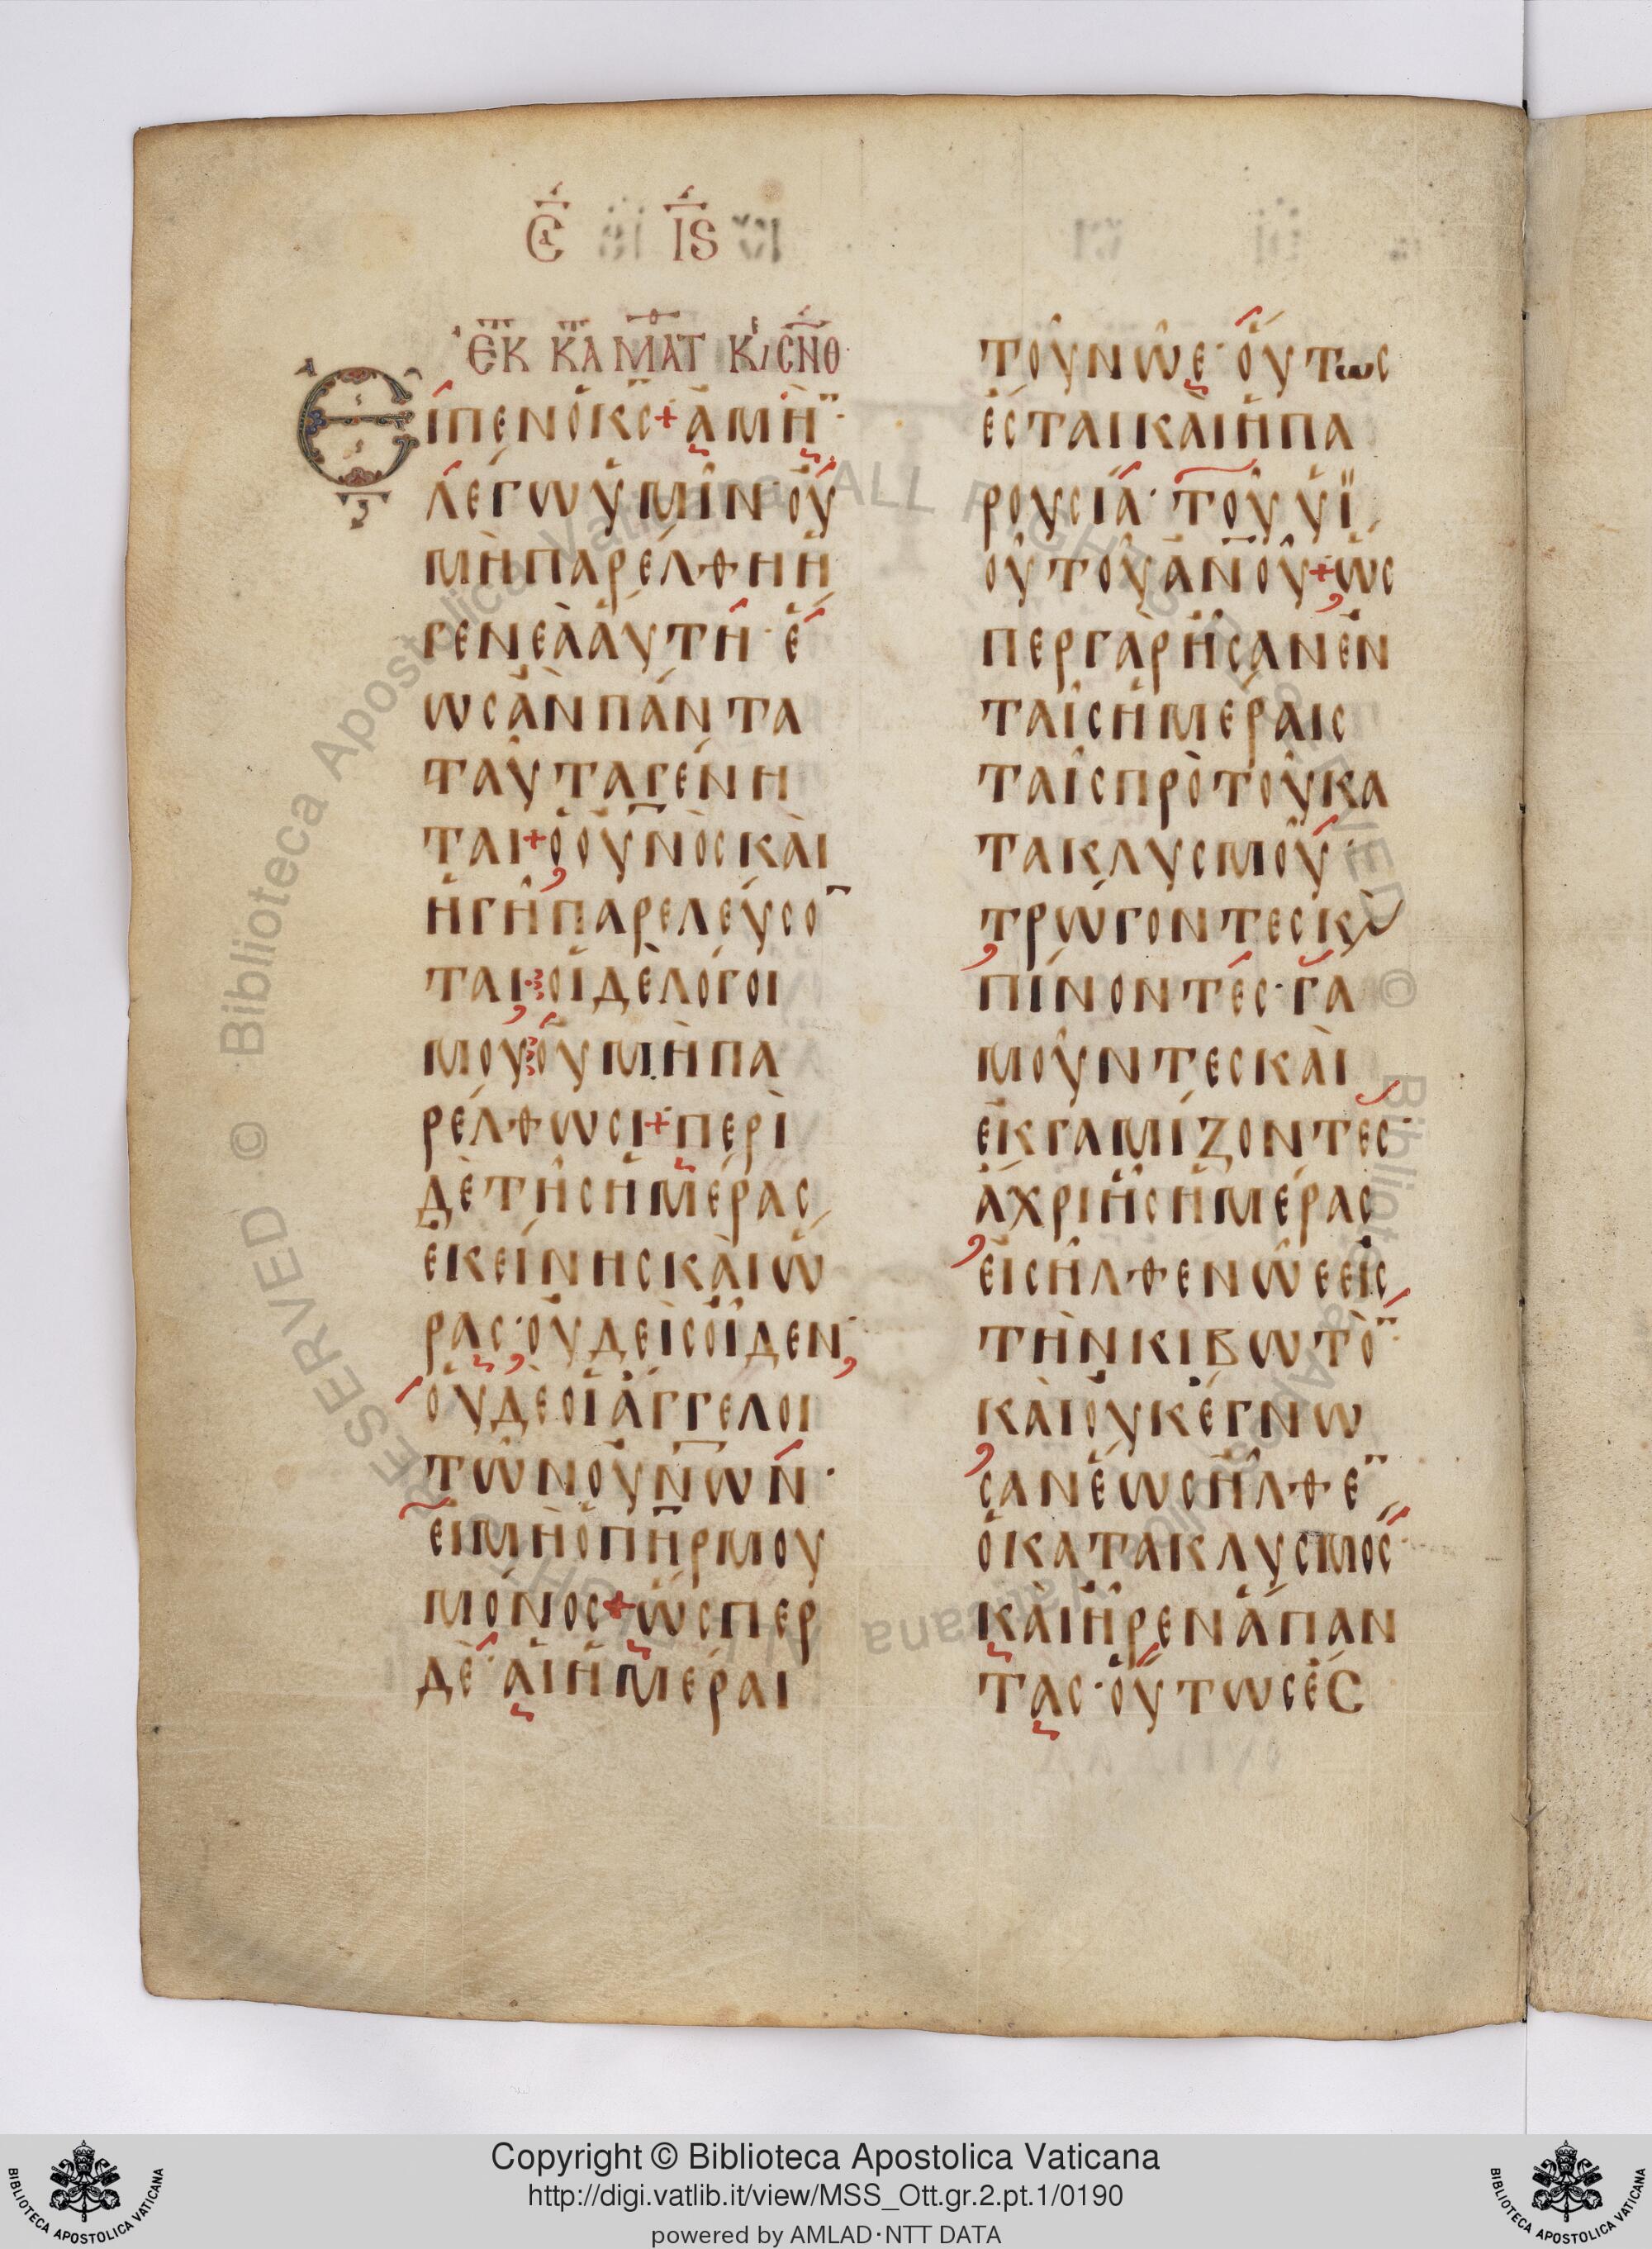 Ϲ̅Α ΙϚ
ἘΚ Κ̅ ΚΑ̅ ΜΑΤ Κ/ ϹΝΘ
ΕΙΠΕΝ Ὁ Κ̅Ϲ + ἈΜῊ̅·
ΛΕΓΩ ὙΜῖΝ· ΟΥ̓
ΜῊ ΠΑΡΈΛΘΗ Ἡ
ΓΕΝΕᾺ ἉΥΤΗ· Ἕ
ΩϹ ἊΝ ΠΆΝΤΑ
ΤΑῦΤΑ ΓΈΝΗ
ΤΑΙ + Ὁ ΟΥ̓Ν̅ῸϹ ΚΑῚ
Ἡ ΓΗ͂ ΠΑΡΕΛΕΎϹΟ̅
ΤΑΙ· ΟἹ ΔῈ ΛΌΓΟΙ
ΜΟΥ· ΟΥ̓ ΜῊ ΠΑ
ΡΈΛΘΩϹΙ + ΠΕΡῚ
ΔῈ ΤΗ͂Ϲ ἩΜΈΡΑϹ
ἘΚΕΊΝΗϹ ΚΑῚ Ὥ
ΡΑϹ· ΟΥ̓ΔΕῚϹ ΟἾΔΕΝ·
ΟΥ̓ΔῈ ΟἹ ἌΓΓΕΛΟΙ
ΤΩ͂Ν ΟΥ̓Ν̅ΩΝ·
ΕἸ ΜῊ Ὁ Π̅Η̅Ρ ΜΟΥ
ΜΌΝΟϹ + ὭϹΠΕΡ
ΔῈ· ἉΙ ἩΜΈΡΑΙ
ΤΟῦ ΝΩ͂Ε· ΟὝΤΩϹ
ἘϹΤΑΙ ΚΑῚ Ἡ ΠΑ
ΡΟΥϹΊΑ· ΤΟΥ͂ ΥἹ̈
ΟΥ͂ ΤΟΥ͂ ἈΝ̅ΟΥ + ὩϹ
ΠΕΡ ΓᾺΡ ἮϹΑΝ ἘΝ
ΤΑΙ͂Ϲ ἩΜΈΡΑΙϹ
ΤΑΙ͂Ϲ ΠΡῸ ΤΟΥ͂ ΚΑ
ΤΑΚΛΥϹΜΟΥ͂·
ΤΡΏΓΟΝΤΕϹ Κ̣
ΠΊΝΟΝΤΕϹ· ΓΑ
ΜΟΥ͂ΝΤΕϹ ΚΑῚ
ἘΚΓΑΜΊΖΟΝΤΕϹ·
ἈΧΡΙ ἯϹ ἩΜΈΡΑϹ
ΕἸϹΗ͂ΛΘΕ ΝΩ͂Ε ΕἸϹ
ΤῊΝ ΚΙΒΩΤῸ̅·
ΚΑῚ ΟΥ̓Κ ἘΓΝΩ
ϹΑΝ ἝΩϹ ἮΛΘΕ̅
Ὁ ΚΑΤΑΚΛΥϹΜΟϹ·
ΚΑῚ ἮΡΕΝ ἍΠΑΝ
ΤΑϹ· ΟὝΤΩϹ ἘϹ
Copyright © Biblioteca Apostolica Vaticana
http://digi.vatlib.it/view/MSS_Ott.gr.2.pt.1/0190
powered by AMLAD·NTT DATA
BIBLIOTECA APOSTOLICA VATICANA
BIBLIOTECA APOSTOLICA VATICANA